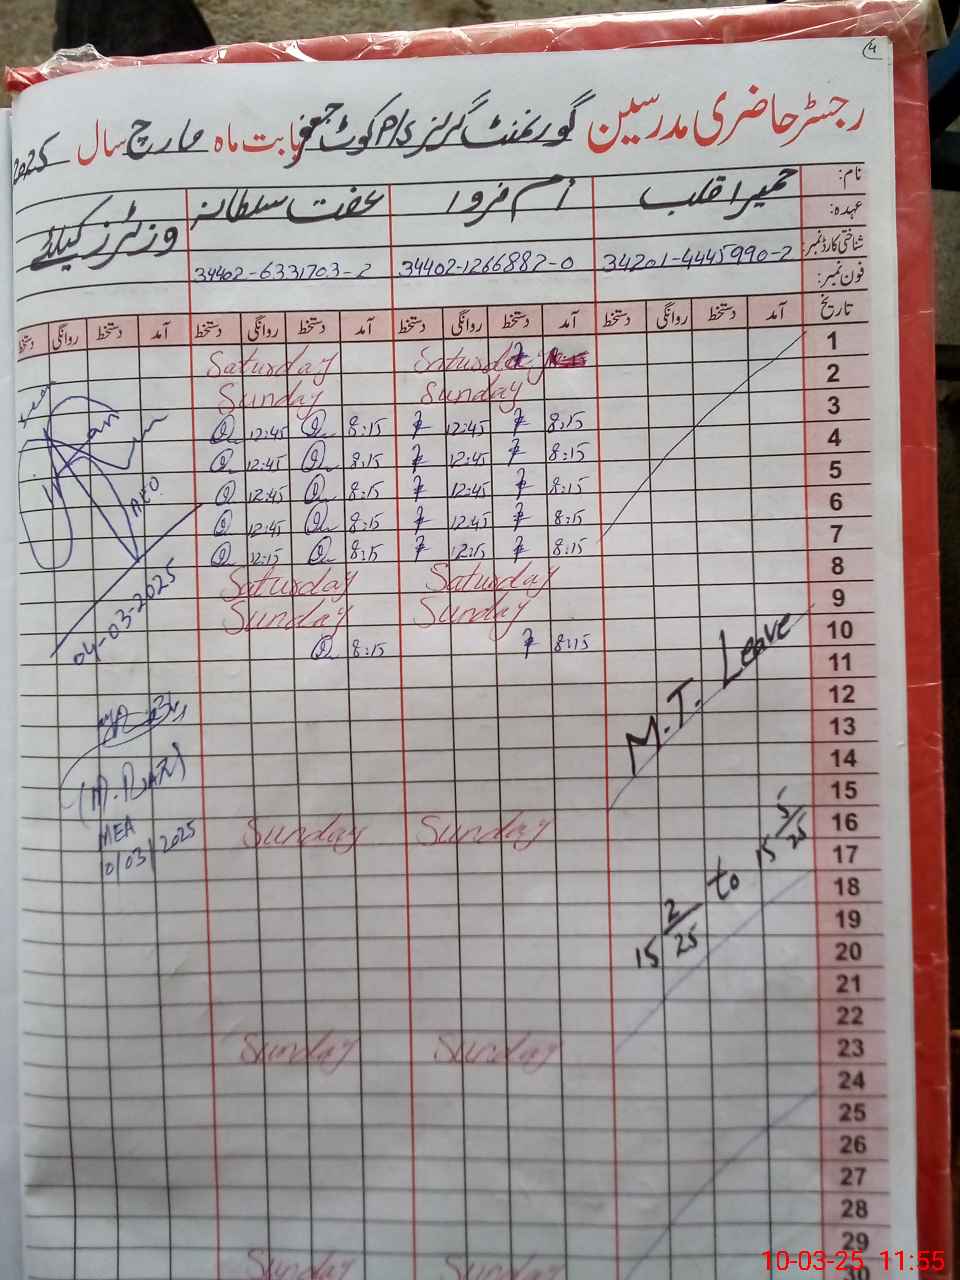 4
رجسٹر حاضری مدرسین گورنمنٹ گرلز P/S کوٹ جعفر بابت ماہ مارچ سال 2025
نام: حمیرا قلب ام فروا عفت سلطانہ وزیٹرز کیلئے
عہدہ:
شناختی کارڈ نمبر: 34201-4445990-2 34402-1266882-0 34402-6331703-2
فون نمبر:
تاریخ آمد دستخط روانگی دستخط آمد دستخط روانگی دستخط آمد دستخط روانگی دستخط آمد دستخط روانگی دستخط
1 Saturday Saturday
2 Sunday Sunday
3 8:15 12:45 8:15 12:45
4 8:15 12:45 8:15 12:45
5 8:15 12:45 8:15 12:45
6 8:15 12:45 8:15 12:45
7 8:15 12:15 8:15 12:15
8 Saturday Saturday
9 Sunday Sunday
10 8:15 8:15
11
12
13
14
15
16 Sunday Sunday
17
18
19
20
21
22
23 Sunday Sunday
24
25
26
27
28
29
30 Sunday Sunday
M.T. Leave
15 2/25 to 15 5/25
AEO
04-03-2025
MEA
10/03/2025
10-03-25 11:55